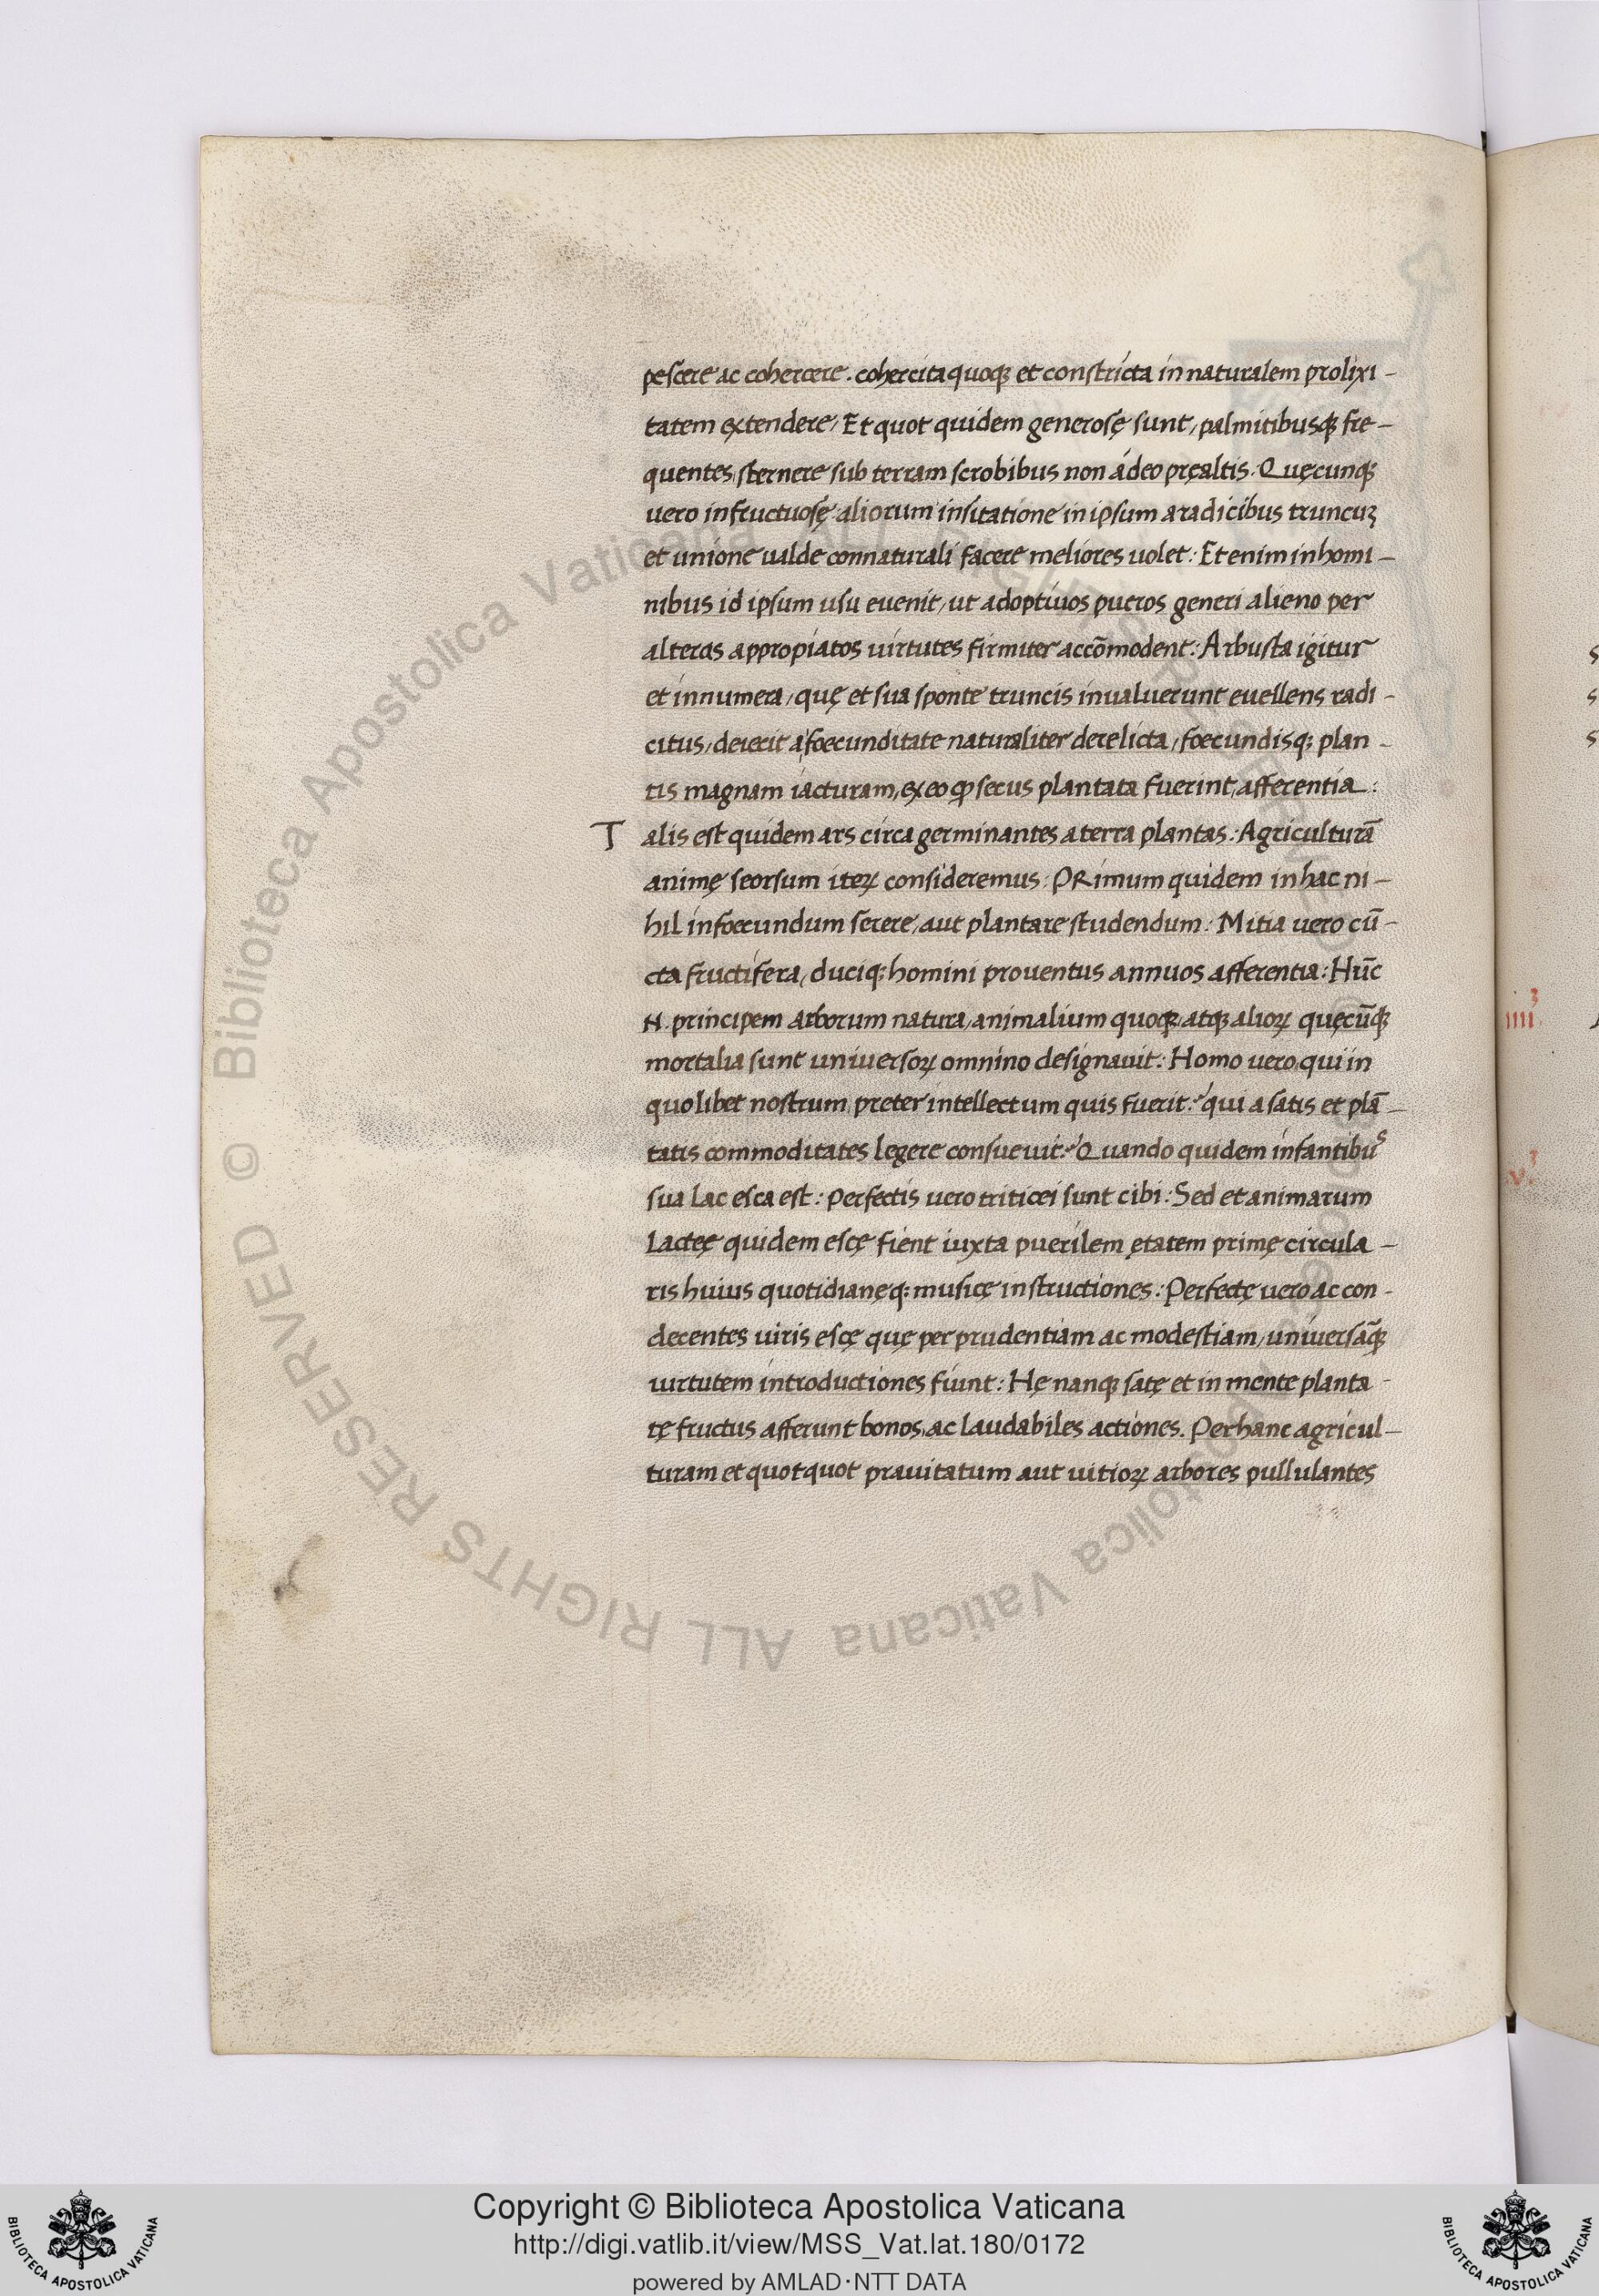 pescere ac cohercere. cohercita quoqꝫ et constricta in naturalem prolixi-
tatem extendere, Et quot quidem generosę sunt, palmitibusqꝫ fre-
quentes, sternere sub terram scrobibus non ádeo pręaltis. Quęcunqꝫ
uero infructuosę aliorum insitatione in ipsum a radicibus truncuꝫ
et unione ualde connaturali facere meliores uolet: Et enim in homi-
nibus id ipsum usu euenit, ut adoptiuos pueros generi alieno per
alteras appropiatos uirtutes firmiter accōmodent: Arbusta igitur
et innumera, quę et sua sponte truncis inualuerunt euellens radi-
citus, deiecit a foecunditate naturaliter derelicta, foecundisq; plan-
tis magnam iacturam, ex eo ꝙ secus plantata fuerint, afferentia:
Talis est quidem ars circa germinantes a terra plantas: Agriculturā
animę seorsum iteꝝ consideremus: PRimum quidem in hac ni-
hil infoecundum serere, aut plantare studendum: Mitia uero cū-
cta fructifera, duciq; homini prouentus annuos afferentia: Hūc
N. principem arborum natura, animalium quoqꝫ, atqꝫ alioꝝ quęcūqꝫ
mortalia sunt uniuersoꝝ omnino designauit: Homo uero, qui in
quolibet nostrum preter intellectum quis fuerit: qui a satis et plā-
tatis commoditates legere consueuit: Quando quidem infantibus
sua lac esca est: Perfectis uero triticei sunt cibi: Sed et animarum
Lacteę quidem escę fient iuxta puerilem ętatem primę circula-
ris huius quotidianęq; musicę instructiones: Perfectę uero ac con-
decentes uiris escę quę per prudentiam ac modestiam, uniuersāqꝫ
uirtutem introductiones fiunt: Hę nanqꝫ satę et in mente planta-
tę fructus afferunt bonos, ac laudabiles actiones. Per hanc agricul-
turam et quotquot prauitatum aut uitioꝝ arbores pullulantes
s
s
s
iiii
v
Biblioteca Apostolica Vaticana
ALL RIGHTS RESERVED ©
Copyright © Biblioteca Apostolica Vaticana
http://digi.vatlib.it/view/MSS_Vat.lat.180/0172
powered by AMLAD·NTT DATA
BIBLIOTECA APOSTOLICA VATICANA
BIBLIOTECA APOSTOLICA VATICANA